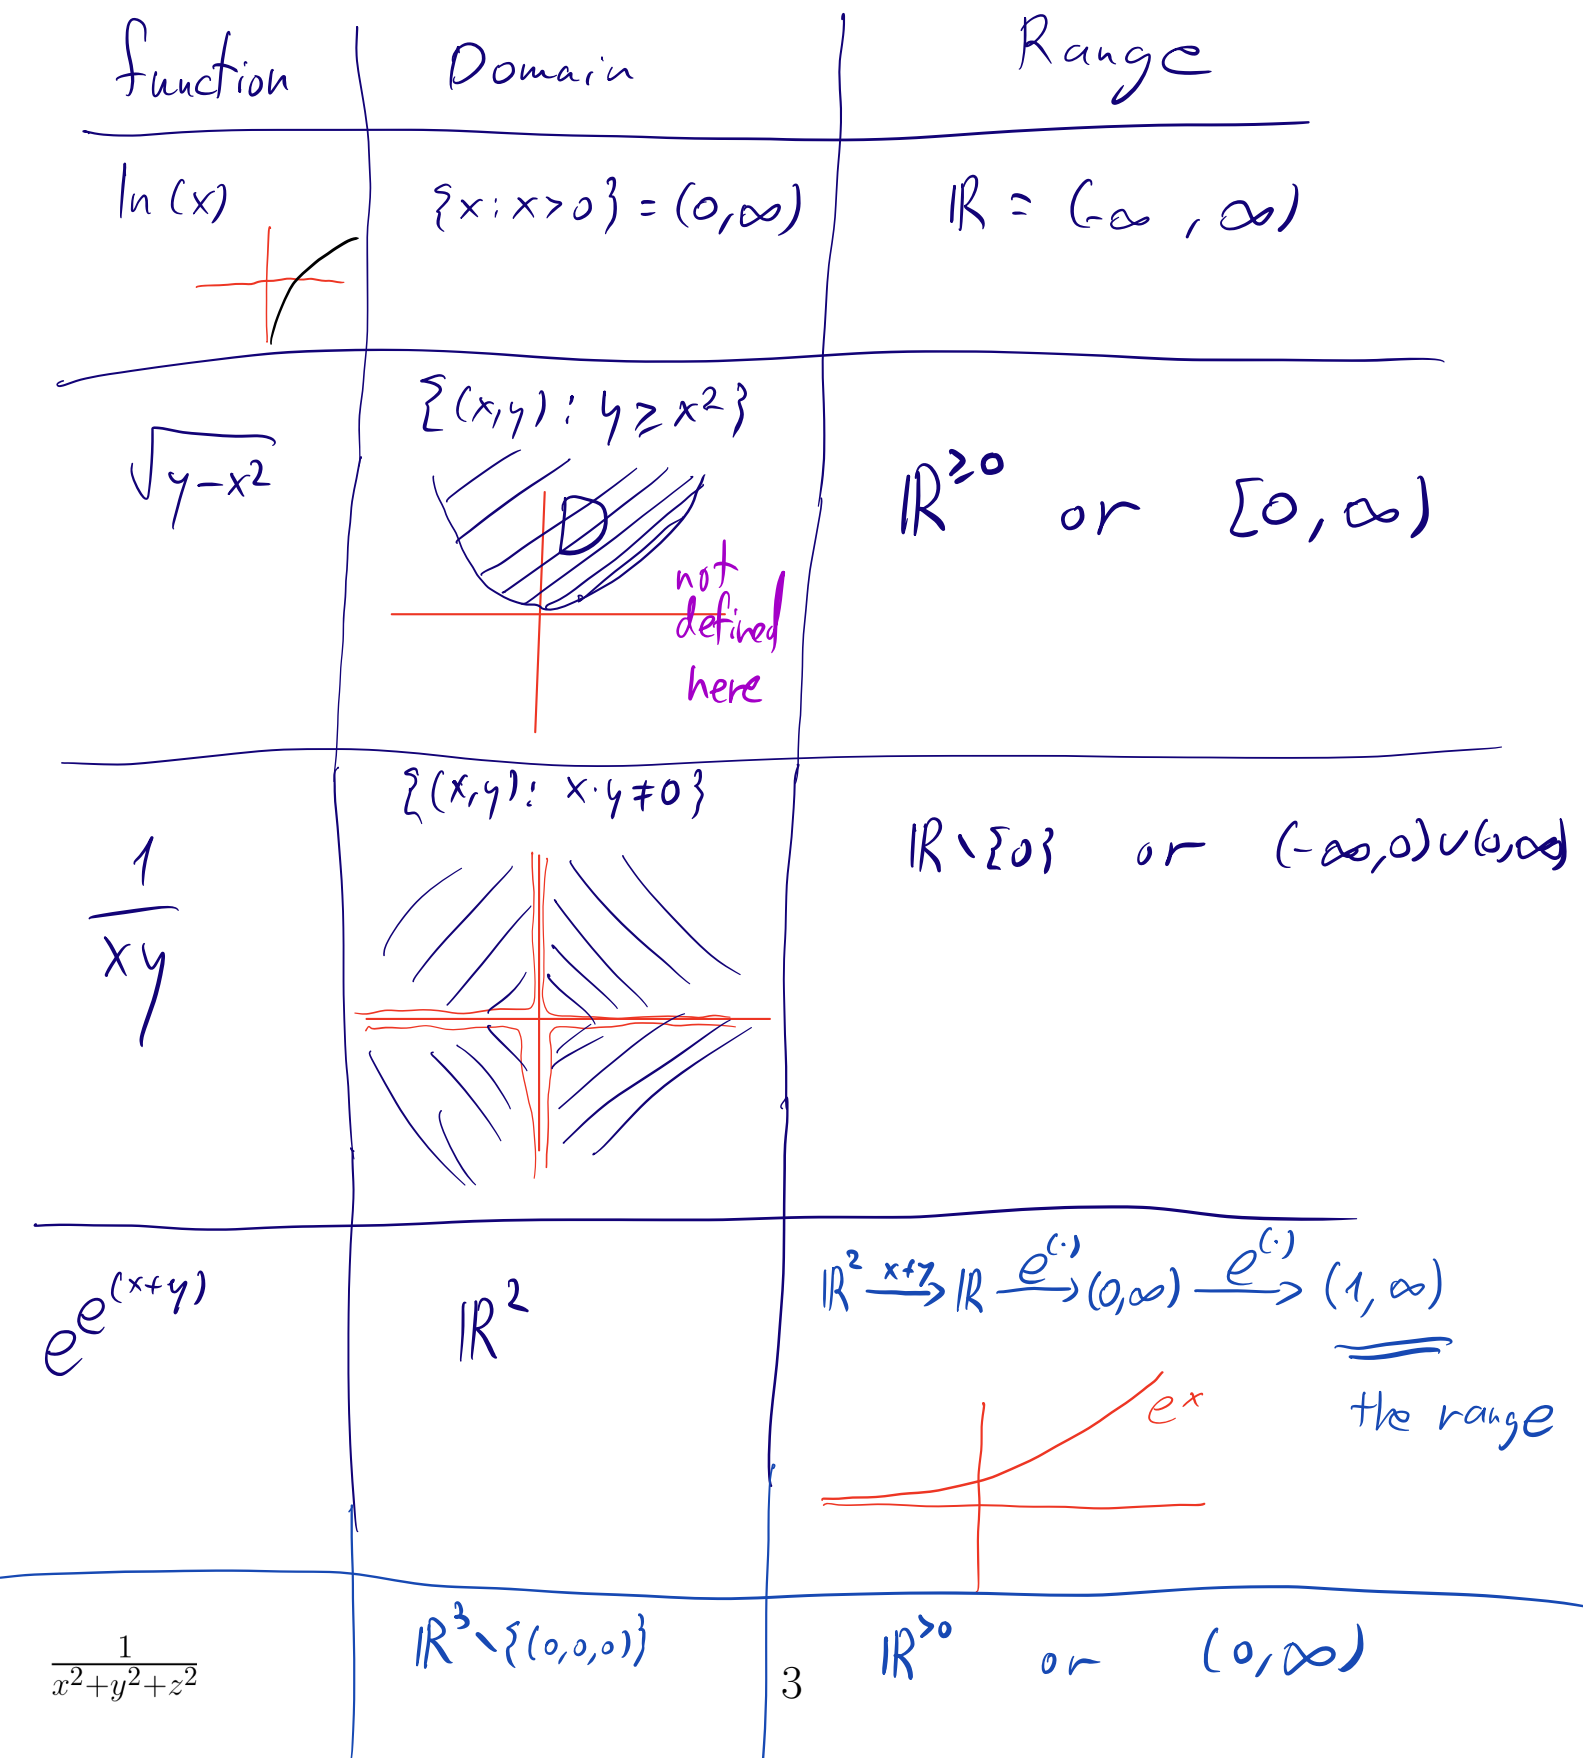 function Domain Range
ln(x) {x : x > 0} = (0,∞) ℝ = (-∞ , ∞)
{(x,y) : y ≥ x²}
√(y-x²) D ℝ^≥0 or [0,∞)
not
defined
here
{(x,y) : x·y ≠ 0}
1/xy ℝ∖{0} or (-∞,0)∪(0,∞)
e^e^(x+y) ℝ² ℝ² —x+y→ ℝ —e^(·)→ (0,∞) —e^(·)→ (1,∞)
e^x the range
1/(x²+y²+z²) ℝ³∖{(0,0,0)} ℝ^>0 or (0,∞)
3